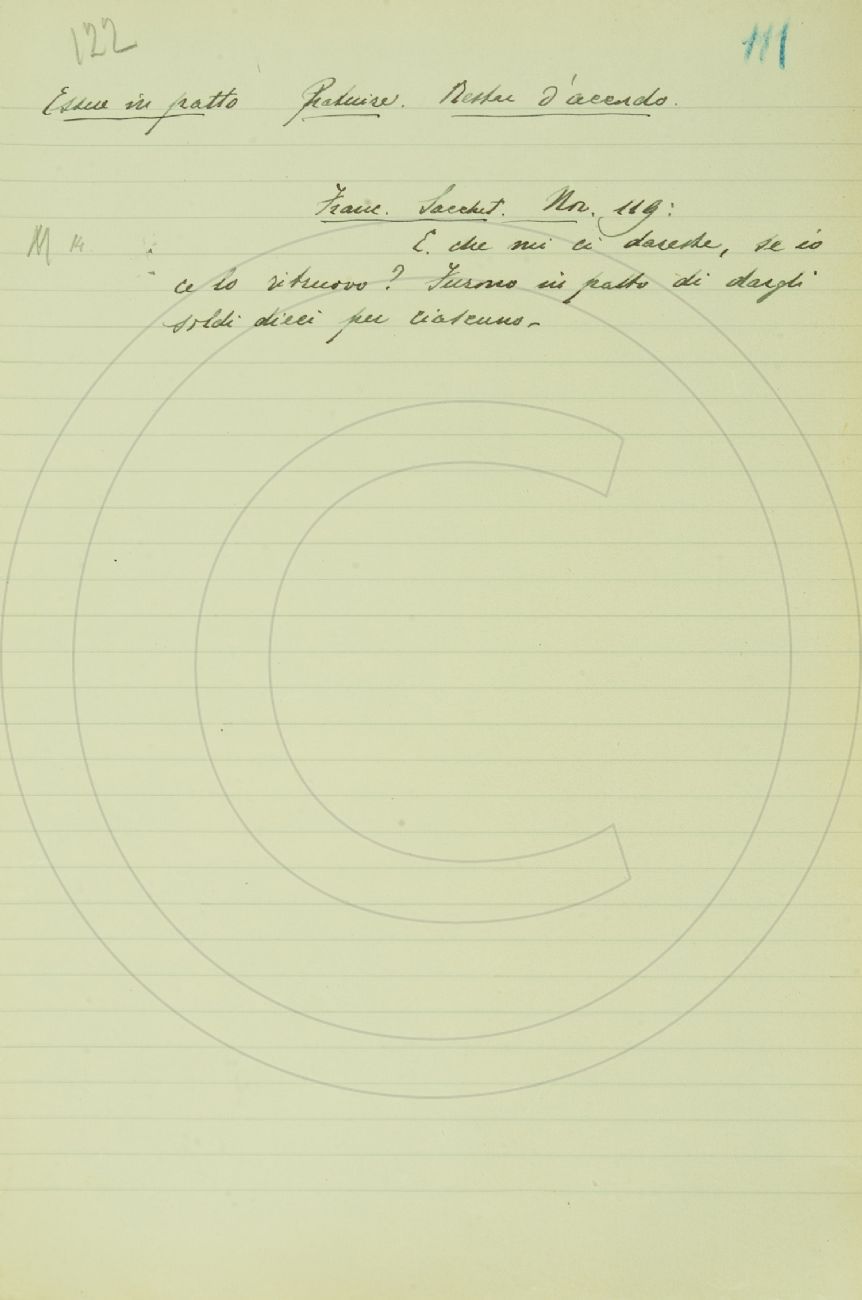 122 111
Essere in patto Pattuire. Restar d'accordo.
Franc. Sacchet. Nov. 119:
M 14
E. che mi ci dareste, se io
ce lo ritruovo? Furono in patto di dargli
soldi dieci per ciascuno.